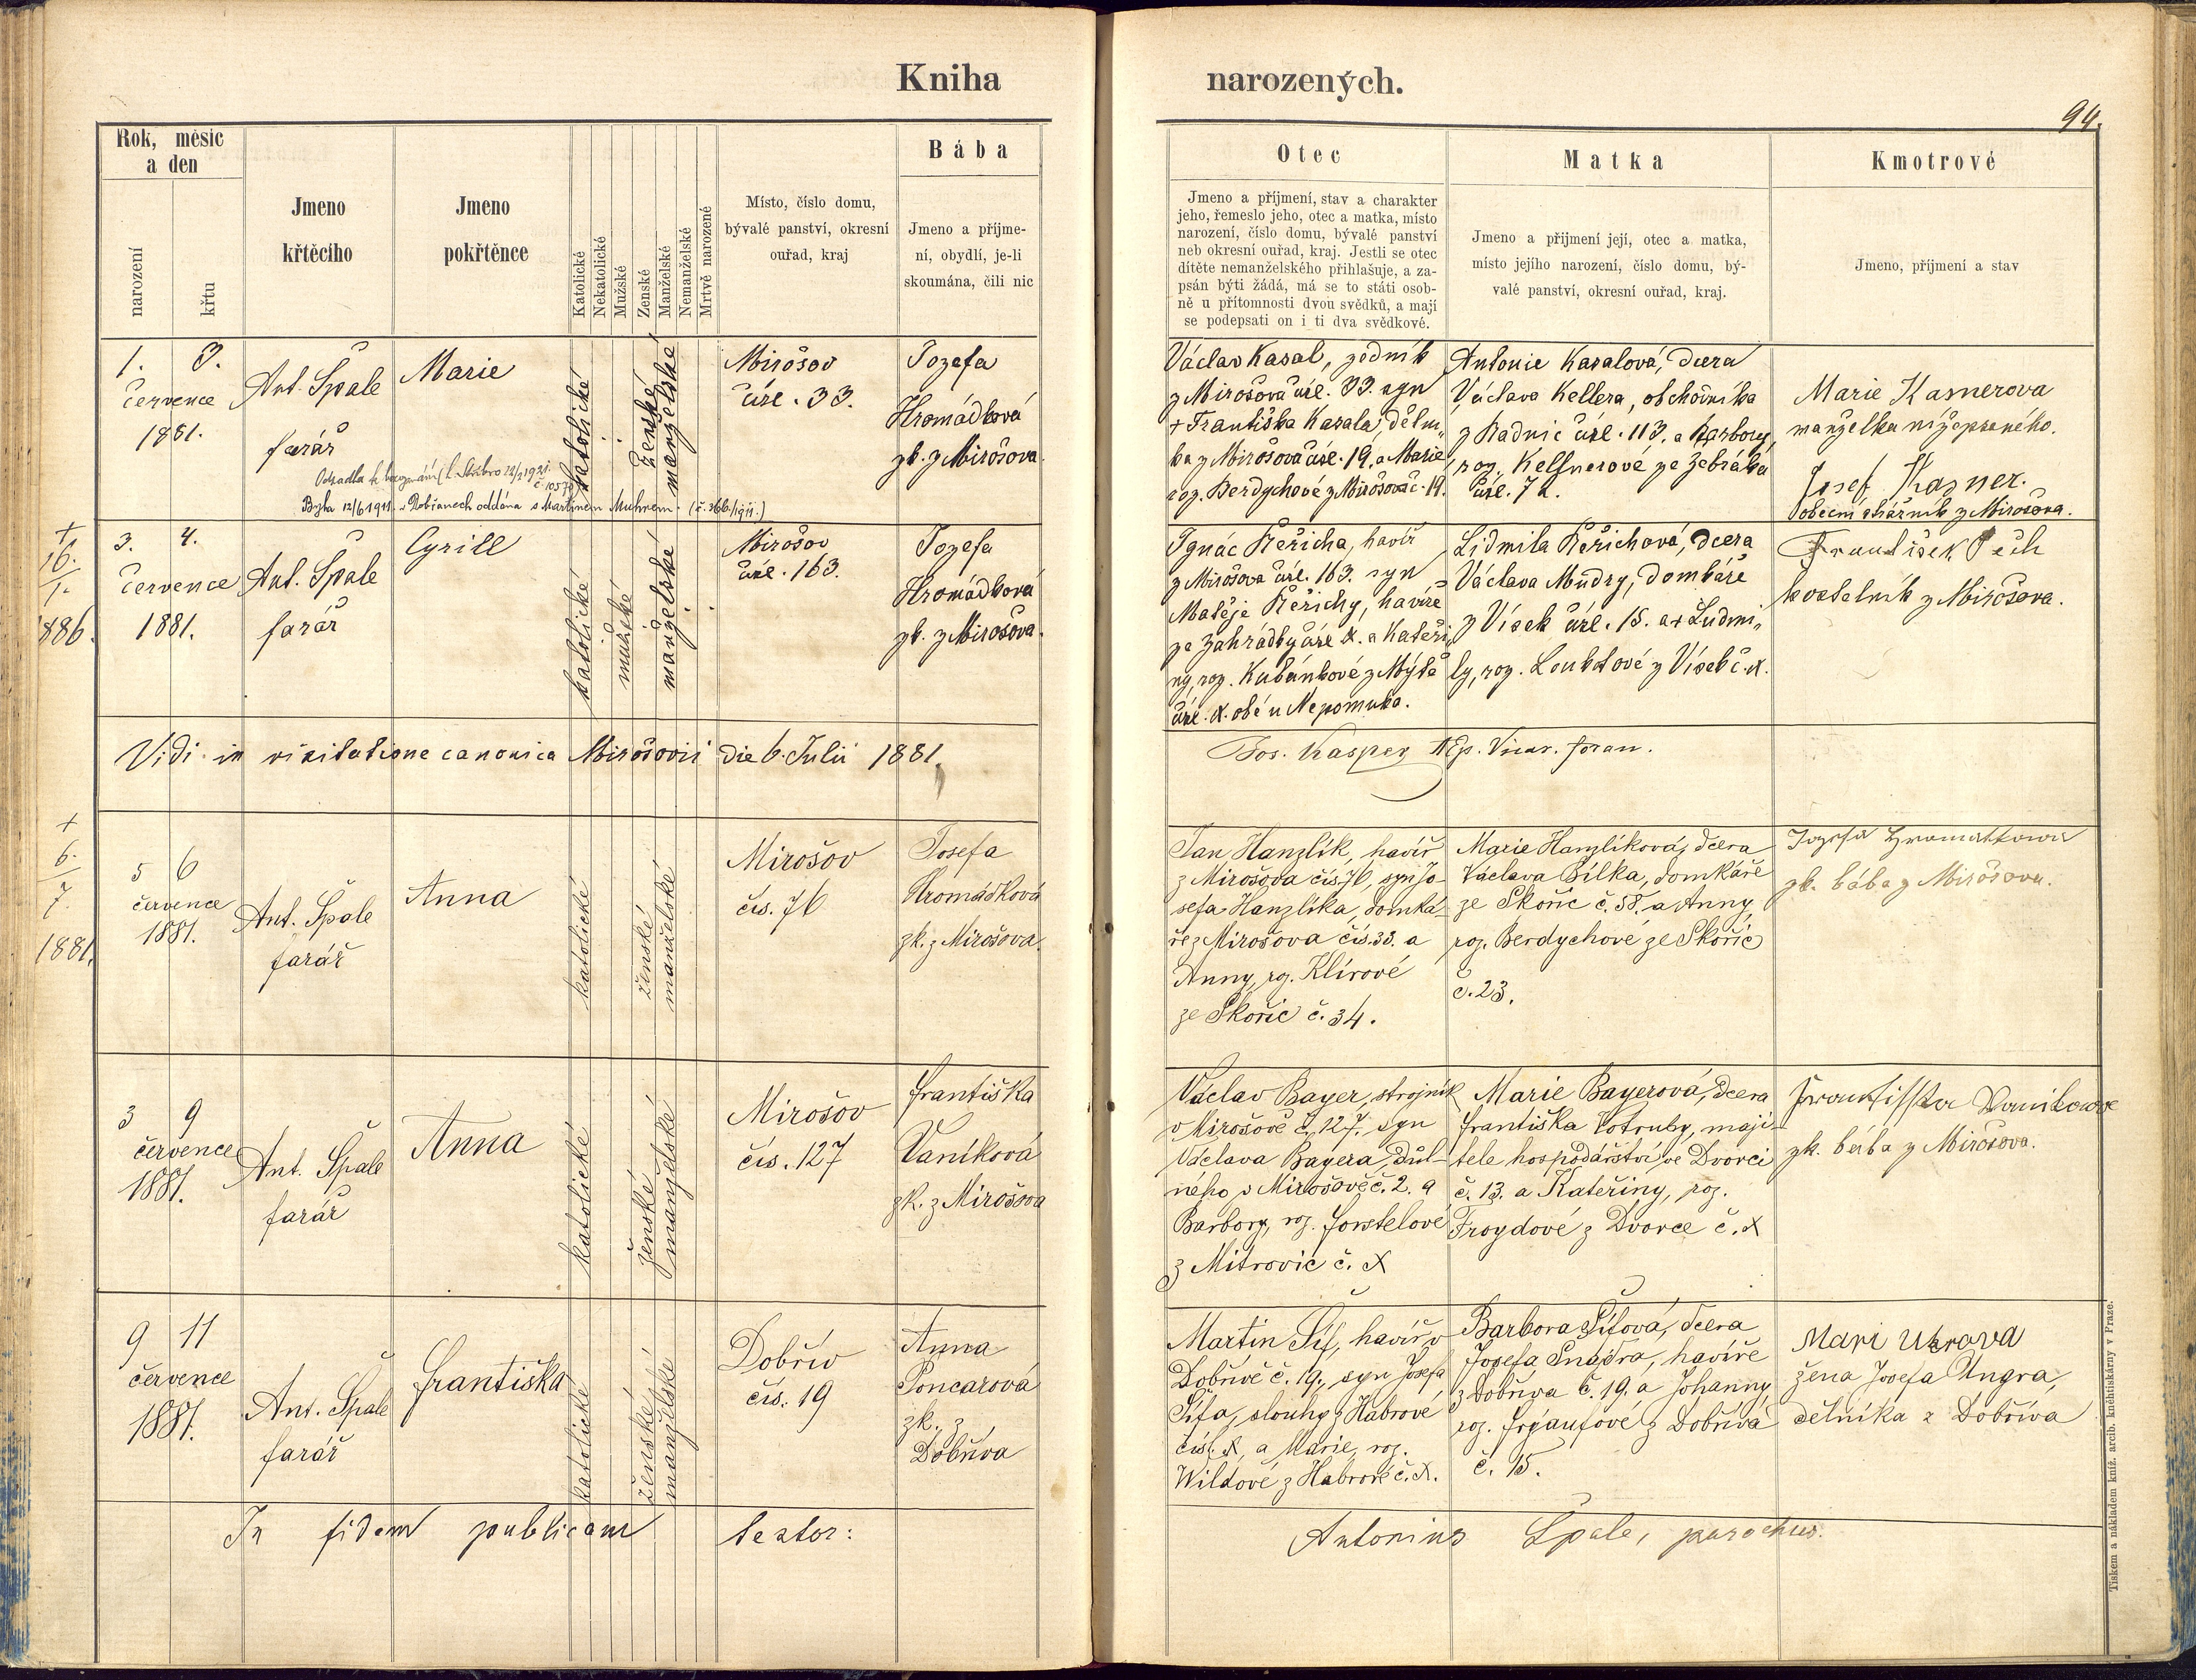 Kniha narozených.
94.
Rok, měsíc
a den
narození
křtu
Jmeno
křtěcího
Jmeno
pokřtěnce
Katolické
Nekatolické
Mužské
Ženské
Manželské
Nemanželské
Mrtvě narozené
Místo, číslo domu,
bývalé panství, okresní
ouřad, kraj
Bába
Jmeno a příjme-
ní, obydlí, je-li
skoumána, čili nic
Otec
Jmeno a příjmení, stav a charakter
jeho, řemeslo jeho, otec a matka, místo
narození, číslo domu, bývalé panství
neb okresní ouřad, kraj. Jestli se otec
dítěte nemanželského přihlašuje, a za-
psán býti žádá, má se to státi osob-
ně u přítomnosti dvou svědků, a mají
se podepsati on i ti dva svědkové.
Matka
Jmeno a přijmení její, otec a matka,
místo jejího narození, číslo domu, bý-
valé panství, okresní ouřad, kraj.
Kmotrové
Jmeno, příjmení a stav
1. 3.
července
1881.
Ant. Špale
farář
Marie
katolické
ženské
manželské
Mirošov
čísl. 33.
Jozefa
Hromádková
zk. z Mirošova.
Václav Kasal, zedník
z Mirošova čísl. 33. syn
+ Františka Kasala, děln„
ka z Mirošova čísl. 19. a Marie
roz. Berdychové z Mirošova č. 19.
Antonie Kasalová, dcera
Václava Kellera, obchodníka
z Radnic čísl. 113. a Barbory,
roz. Kelsnerové ze Žebráka
čísl. 72.
Marie Kasnerova
manželka nížepsaného.
Josef Kazner.
obecní strážník z Mirošova.
Byla 12/6 1911. v Dobřanech oddána s Martinem Muhrem. (č. 366/1911.)
+
16.
1.
1886.
3. 4.
července
1881.
Ant. Špale
farář
Cyrill
katolické
mužské
manželské
Mirošov
čísl. 163.
Jozefa
Hromádková
zk. z Mirošova.
Ignác Řeřicha, havíř
z Mirošova čísl. 163. syn
Matěje Řeřichy, havíře
ze Zahrádky čísl. X. a Kateři„
ny, roz. Kubánkové z Mýtě
čísl. X. obé u Nepomuka.
Lidmila Řeřichová, dcera
Václava Mudry, domkáře
z Vísek čísl. 15. a + Ludmi„
ly, roz. Loukotové z Vísek č. X.
František Pech
kostelník z Mirošova.
Vidi in visitatione canonica Mirošovii die 6. Julii 1881.
Jos. Kasper AEp. Vicar. foran.
+
6.
7.
1881.
5 6
července
1881.
Ant. Špale
farář
Anna
katolické
ženské
manželské
Mirošov
čís. 76
Josefa
Hromádková
zk. z Mirošova.
Jan Hanzlík, havíř
z Mirošova čís. 76, syn Jo-
sefa Hanzlíka, domká-
ře z Mirošova čís. 33. a
Anny, rz. Klírové
ze Skořic č. 34.
Marie Hanzlíková, dcera
Václava Bílka, domkáře
ze Skořic č. 58. a Anny,
roz. Berdychové ze Skořic
č. 23.
zk. bába z Mirošova.
3 9
července
1881.
Ant. Špale
farář
Anna
katolické
ženské
manželské
Mirošov
čís. 127
Františka
Vaníková
zk. z Mirošova
Václav Bayer, strojník
v Mirošově č. 127. syn
Václava Bayera, důl-
ného v Mirošově č. 2. a
Barbory, roz. Forstelové
z Mitrovic č. X
Marie Bayerová, dcera
Františka Kotruby, maji-
tele hospodářství ve Dvorci
č. 13. a Kateřiny, roz.
Froydové z Dvorce č. X
zk. bába z Mirošova.
9 11
července
1881.
Ant. Špale
farář
Františka
katolické
ženské
manželské
Dobřív
čís. 19
Anna
Poncarová
zk. z
Dobříva
Martin Šíf, havíř v
Dobřívě č. 19., syn Josefa
Šífa, slouhy z Habrové
čísl. X, a Marie, roz.
Wildové z Habrové č. X.
Barbora Šífová, dcera
Josefa Šnajdra, havíře
z Dobříva č. 19. a Johanny,
roz. z Dobříva
č. 15.
Mari
žena Josefa Ungra,
dělníka z Dobříva
In fidem publicam testor:
Antonius Špale, parochus.
Tiskem a nákladem kníž. arcib. kněhtiskárny v Praze.